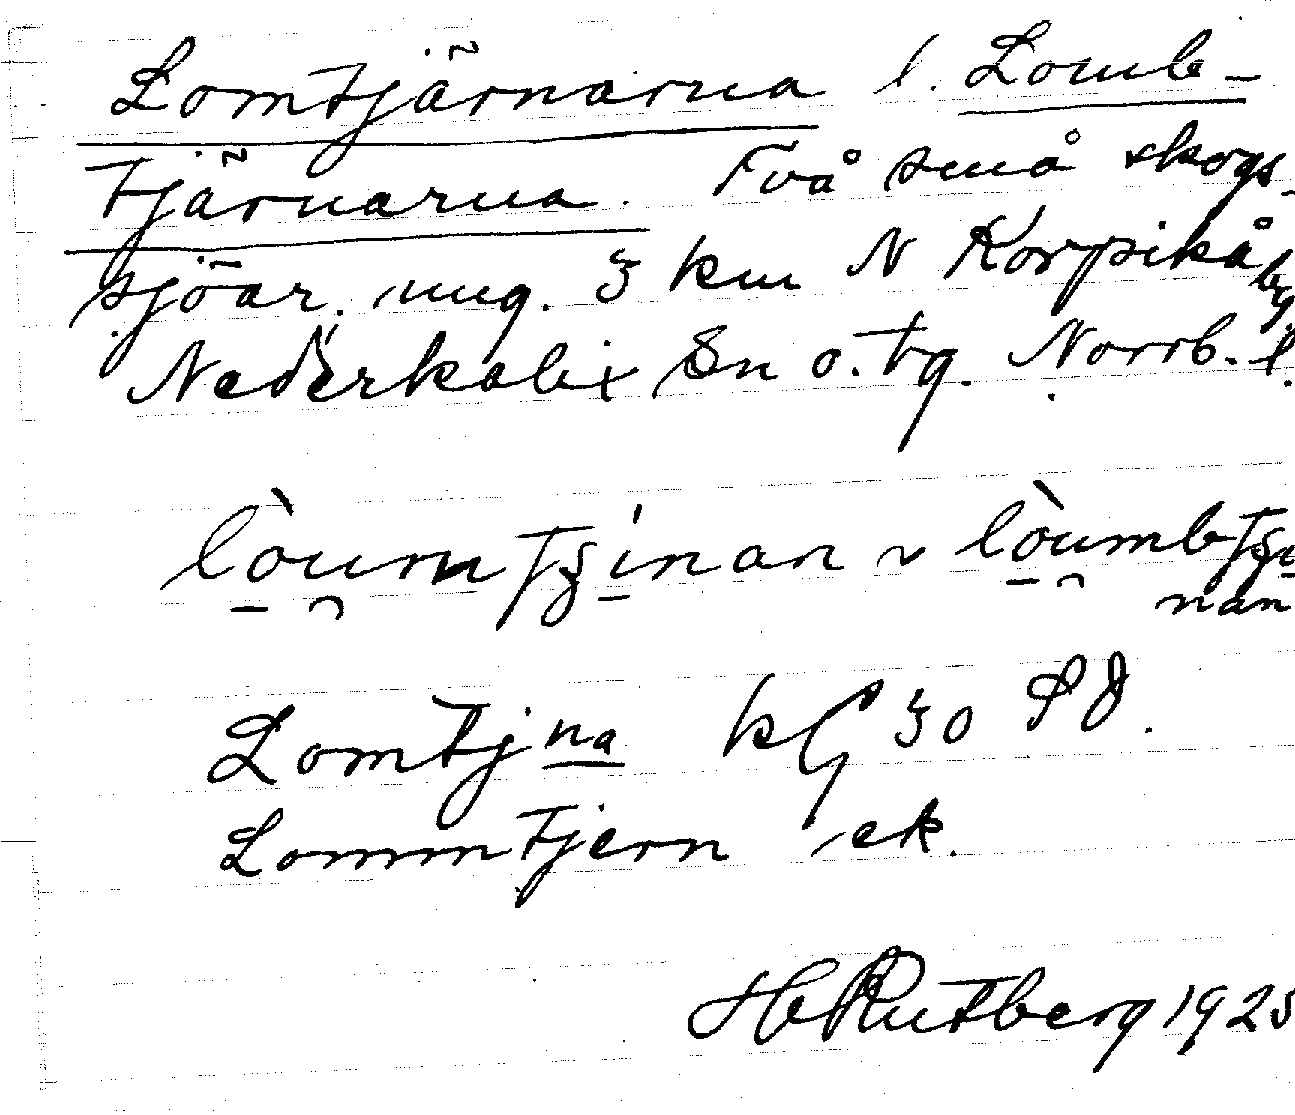 Lomtjärnarna l. Lomb-
tjärnarna. Två små skogs-
sjöar. ung. 3 km N Korpikå by
Nederkalix Sn o. tg. Norrb. l.
lòumtʃinan ~ lòumbtʃi
nan
Lomtjna kG 30 SV.
Lommtjern ek.
H Rutberg 1925